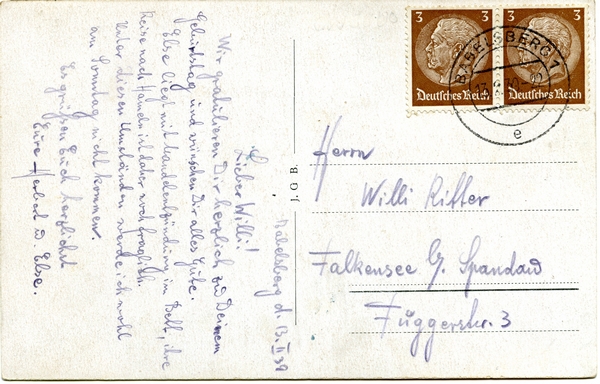 Babelsberg d. 13. II 39
Lieber Willi!
Wir gratulieren Dir herzlich zu Deinem
Geburtstag und wünschen Dir alles Gute.
Else liegt mit Mandelentzündung im Bett, ihre
Reise nach Hause ist daher noch fraglich.
Unter diesen Umständen werde ich wohl
am Sonntag nicht kommen.
Es grüßen Euch herzlichst
Eure Herbert u. Else.
J. G. B.
3 3 3 3
Deutsches Reich Deutsches Reich
BABELSBERG 1
e
Herrn
Willi Ritter
Falkensee b/ Spandau
Fuggerstr. 3